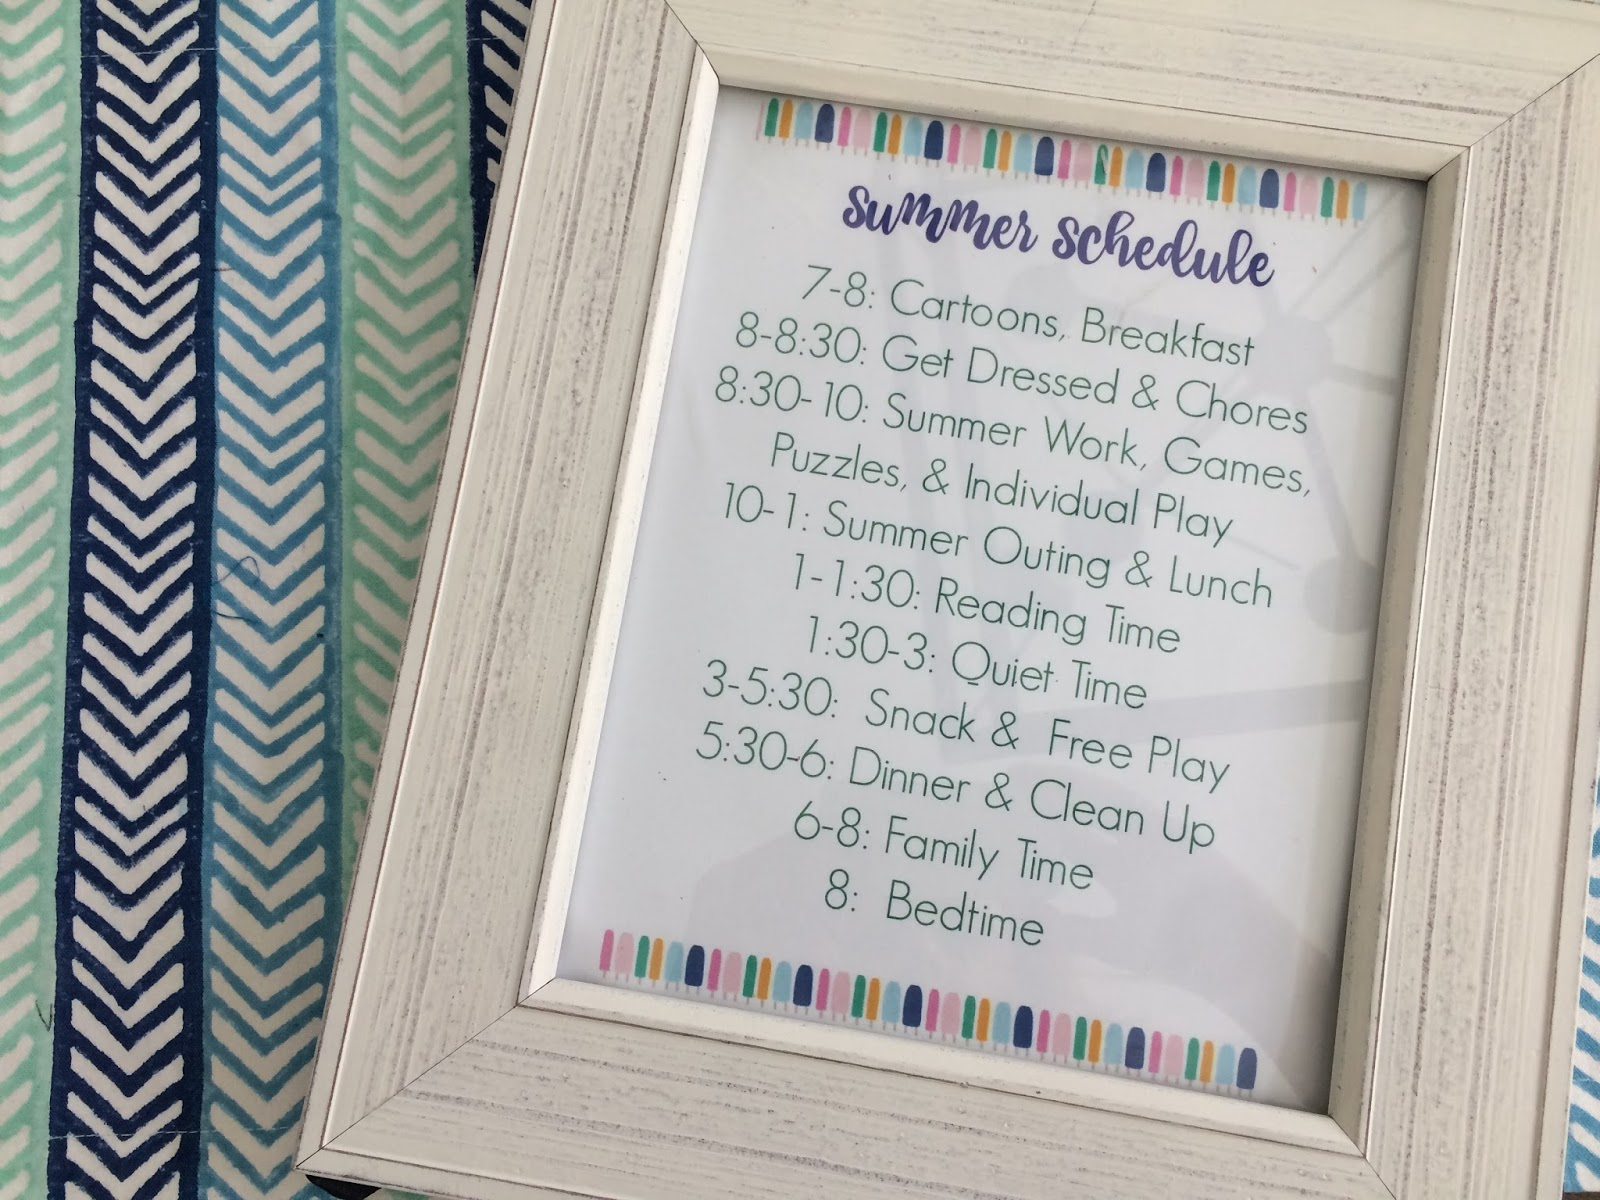 summer schedule
7-8: Cartoons, Breakfast
8-8:30: Get Dressed & Chores
8:30-10: Summer Work, Games,
Puzzles, & Individual Play
10-1: Summer Outing & Lunch
1-1:30: Reading Time
1:30-3: Quiet Time
3-5:30: Snack & Free Play
5:30-6: Dinner & Clean Up
6-8: Family Time
8: Bedtime